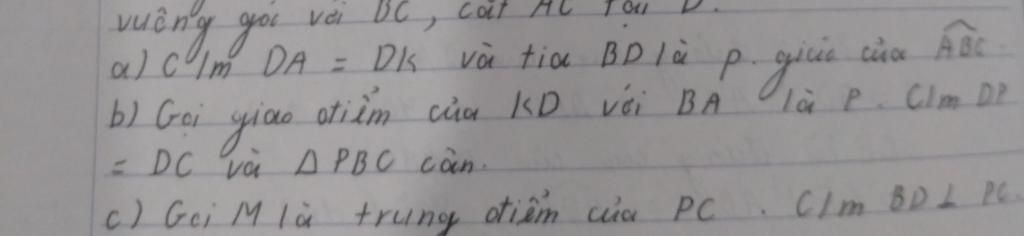 vuông góc với BC, cắt AC tại D.
a) C/m DA = DK và tia BD là p. giác của ABC.
b) Gọi giao điểm của KD với BA là P. C/m DP
= DC và Δ PBC cân.
c) Gọi M là trung điểm của PC. C/m BD ⊥ PC.